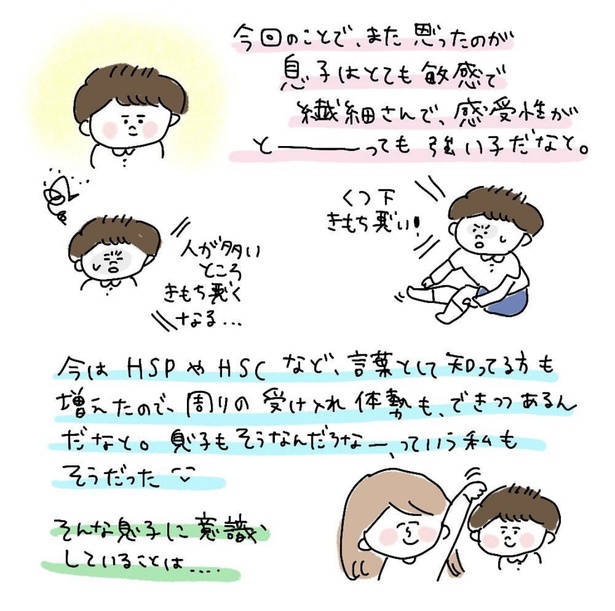 今回のことで、また思ったのが
息子はとても敏感で
繊細さんで、感受性が
と―――っても強い子だなと。
くつ下
きもち悪い!
人が多い
ところ
きもち悪く
なる...
今は HSPやHSC など、言葉として知ってる方も
増えたので、周りの受け入れ体勢も、できつつあるん
だなと。息子もそうなんだろなー、っていう私も
そうだった
そんな息子に意識
していることは.....